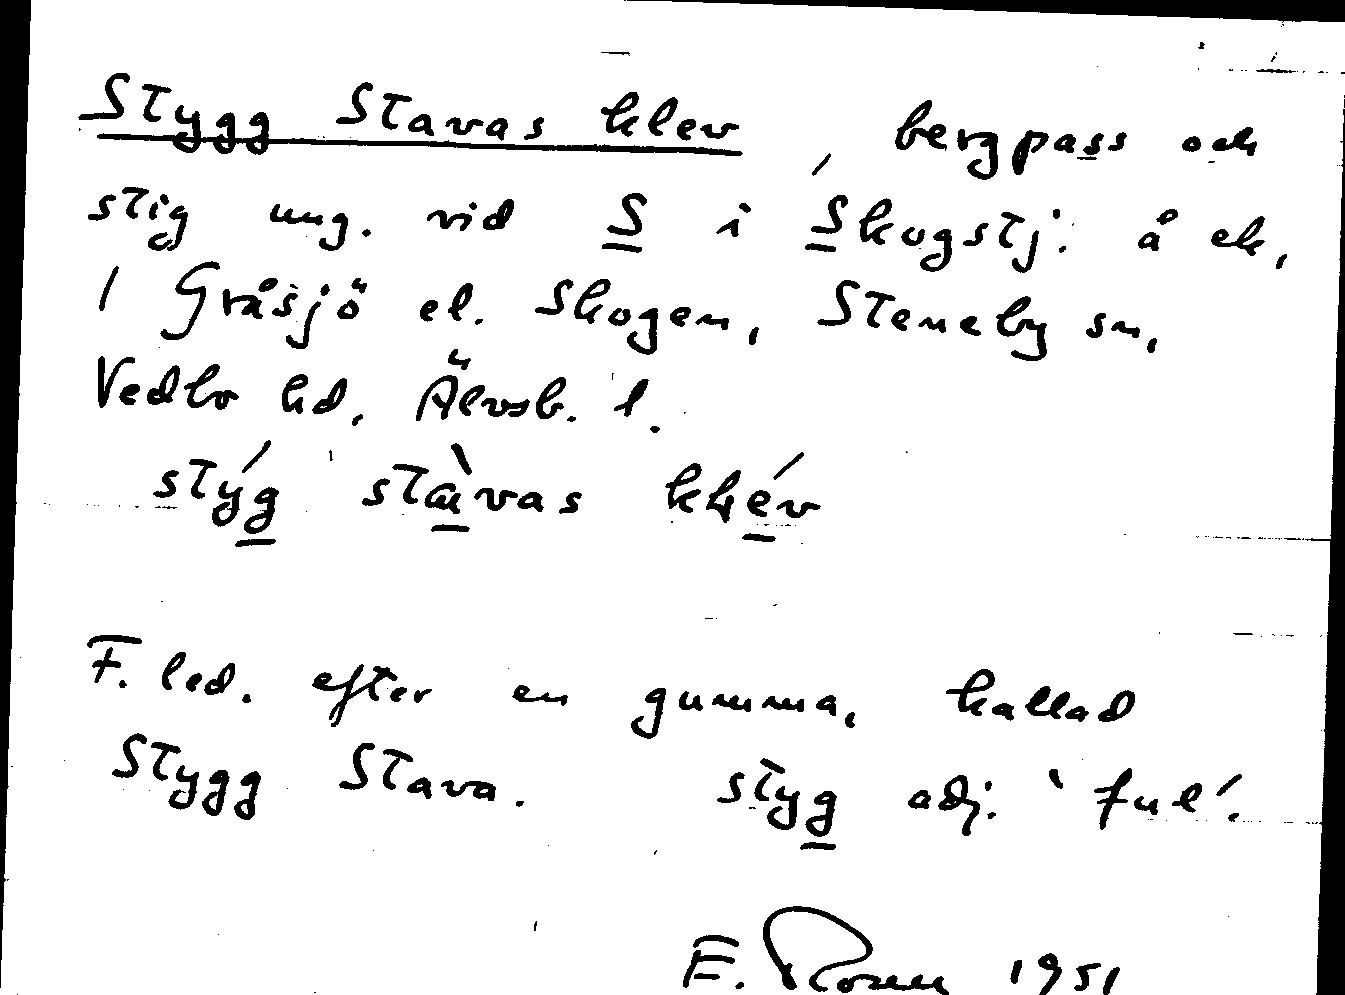 Stygg Stavas klev, bergpass och
stig ung. vid S i Skogstj. å ek,
1 Gråsjö el. Skogen, Steneby sn,
Vedbo hd, Älvsb. l.
stýg stàvas klév
F. led. efter en gumma, kallad
Stygg Stava. styg adj. 'ful'.
E. Rosén 1951